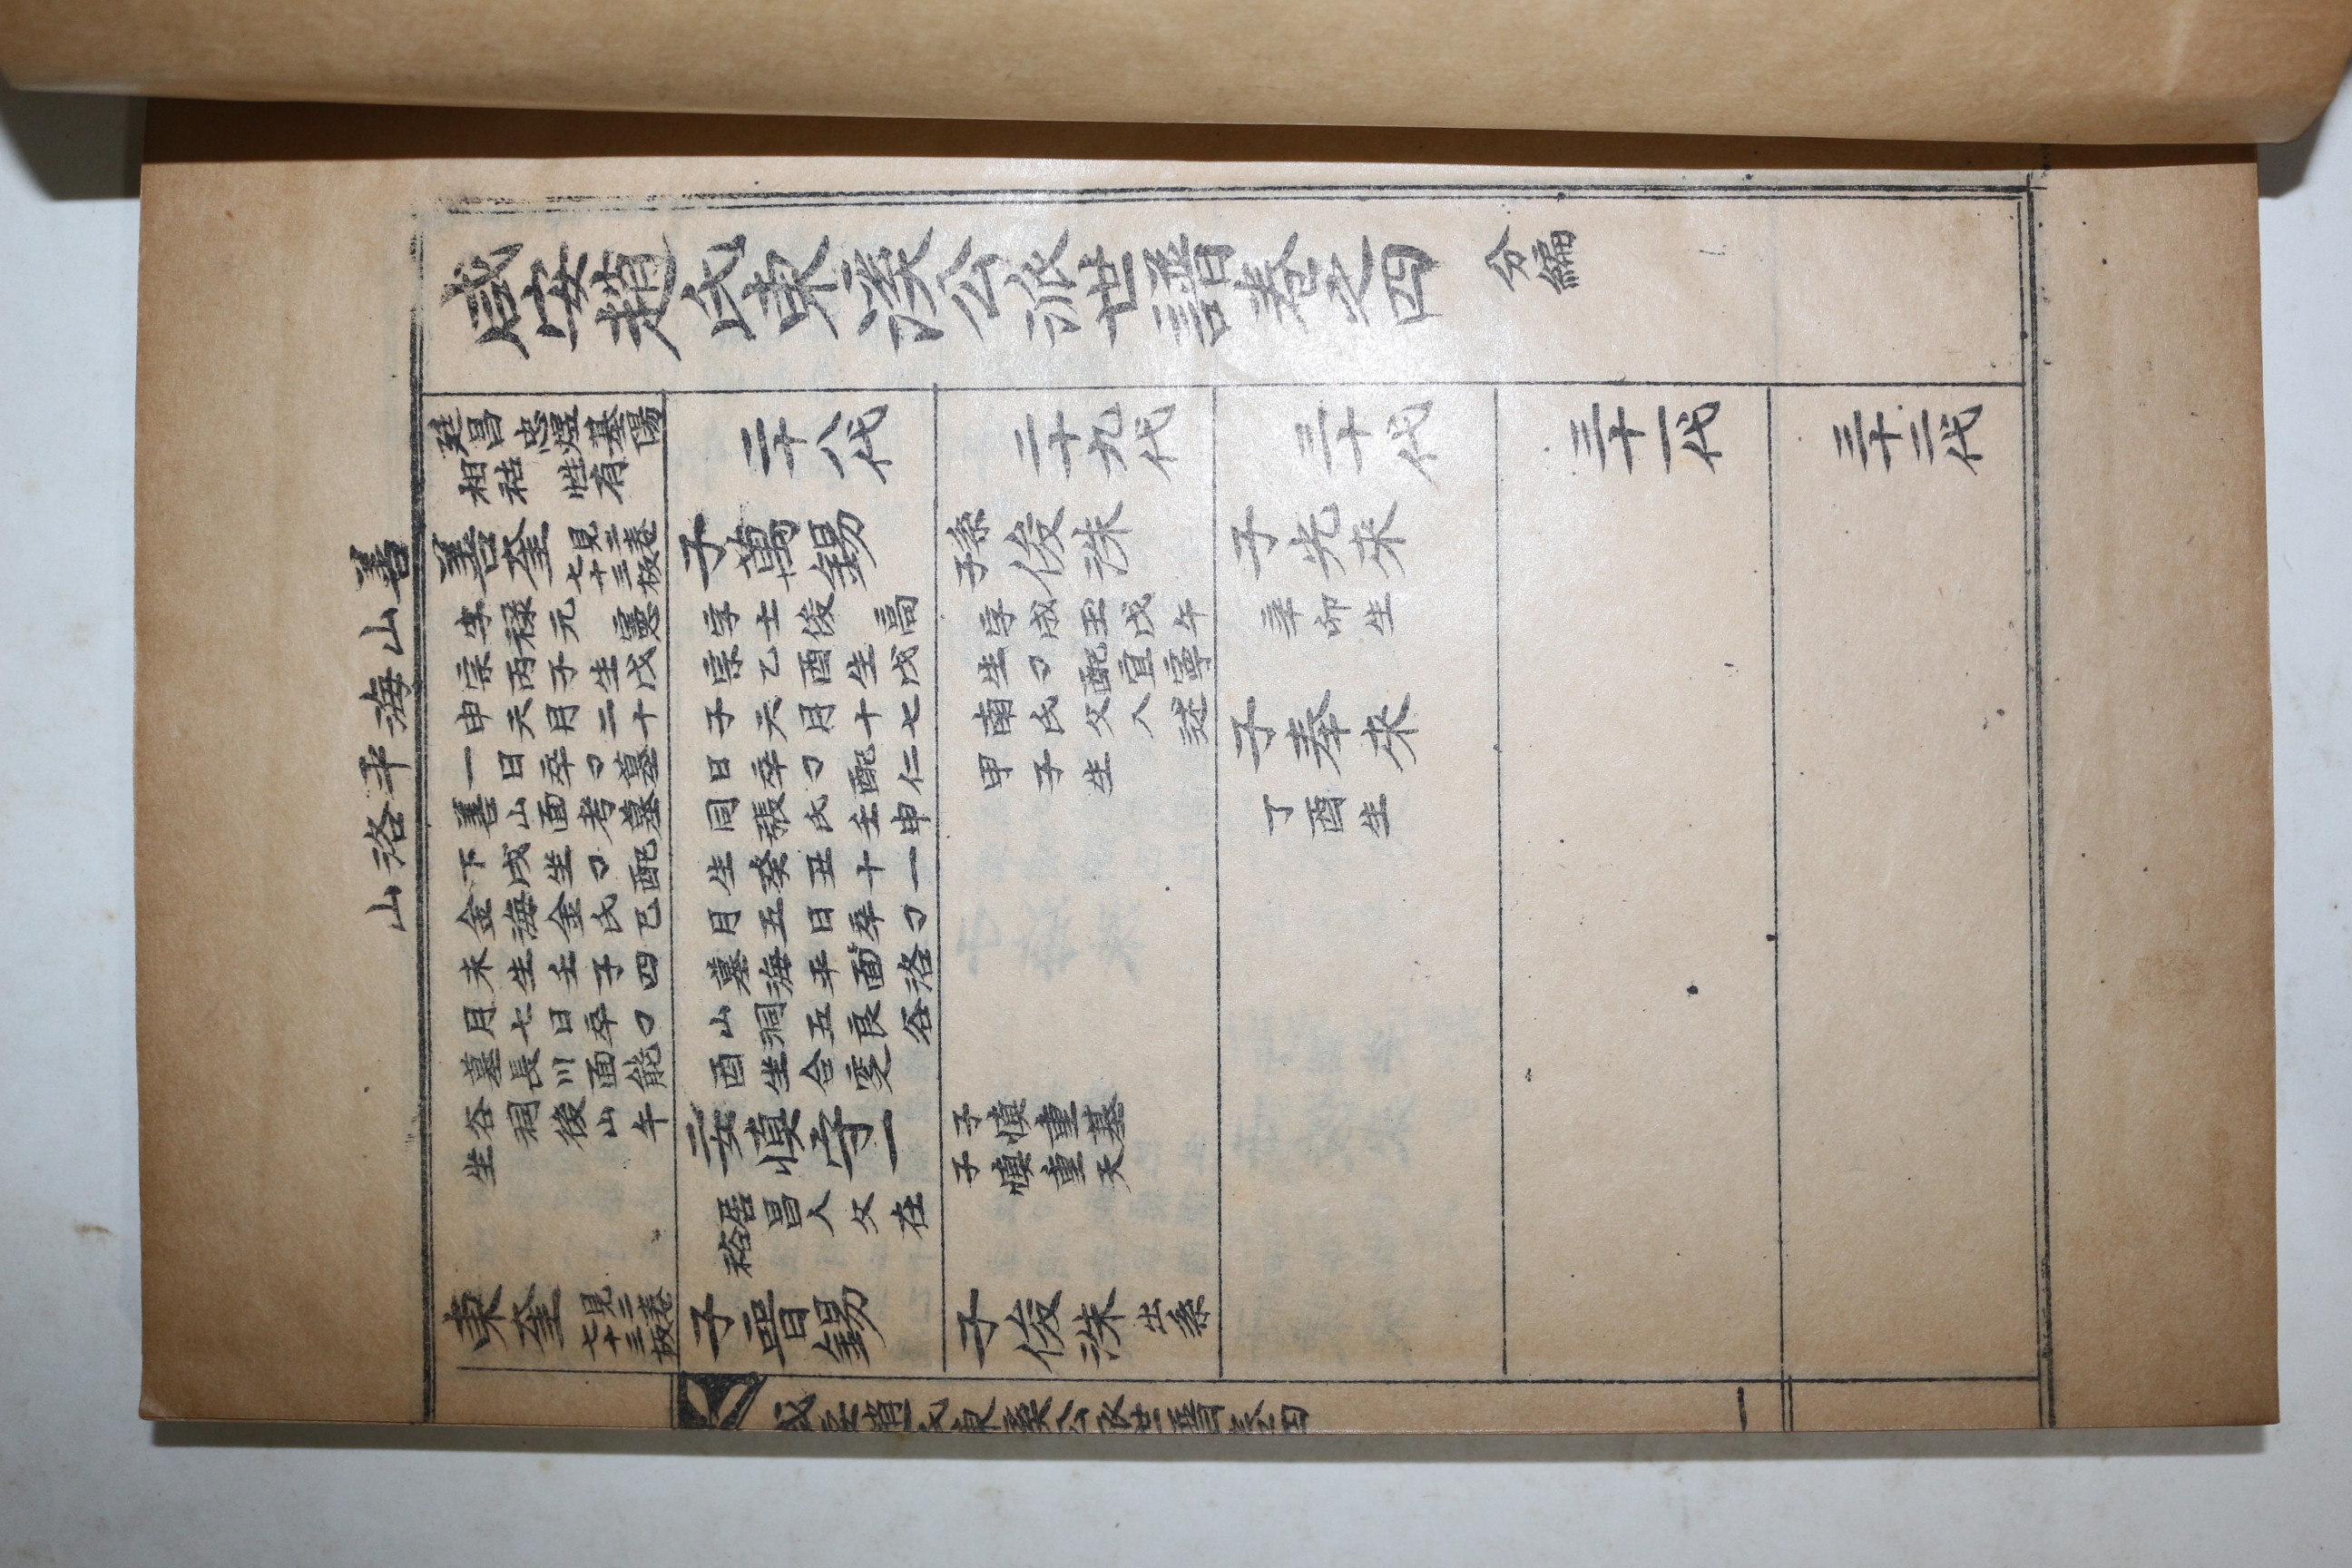 咸安趙氏東溪公派世譜卷之四 分編
善山海平洛山
延昌 忠煜 基陽
相祜 性有
善奎 見二卷七十三板
字祿元 憲
宗丙子生戊
申天月二十
一日卒刁墓
善山面考墓
下戌坐刁配
金海金氏己
未生壬子四
月七日卒刁
墓長川面能
谷祠後山午
坐
東奎 見二卷七十三板
二十八代
子萬錫
字士俊 高
宗乙酉生戊
子天月十七
日卒刁配仁
同張氏壬申
生癸丑十一
月五日卒刁
墓海平面洛
山洞五良谷
酉坐合窆
女慎守一
居昌人父在
裕
子晉錫
二十九代
系子俊洙
字成玉戊午
生刁配宜寧
南氏父入述
甲子生
子慎重基
子慎重天
子俊洙 出系
三十代
子光來
辛卯生
子奉來
丁酉生
三十一代
三十二代
咸安趙氏東溪公派世譜卷四
一